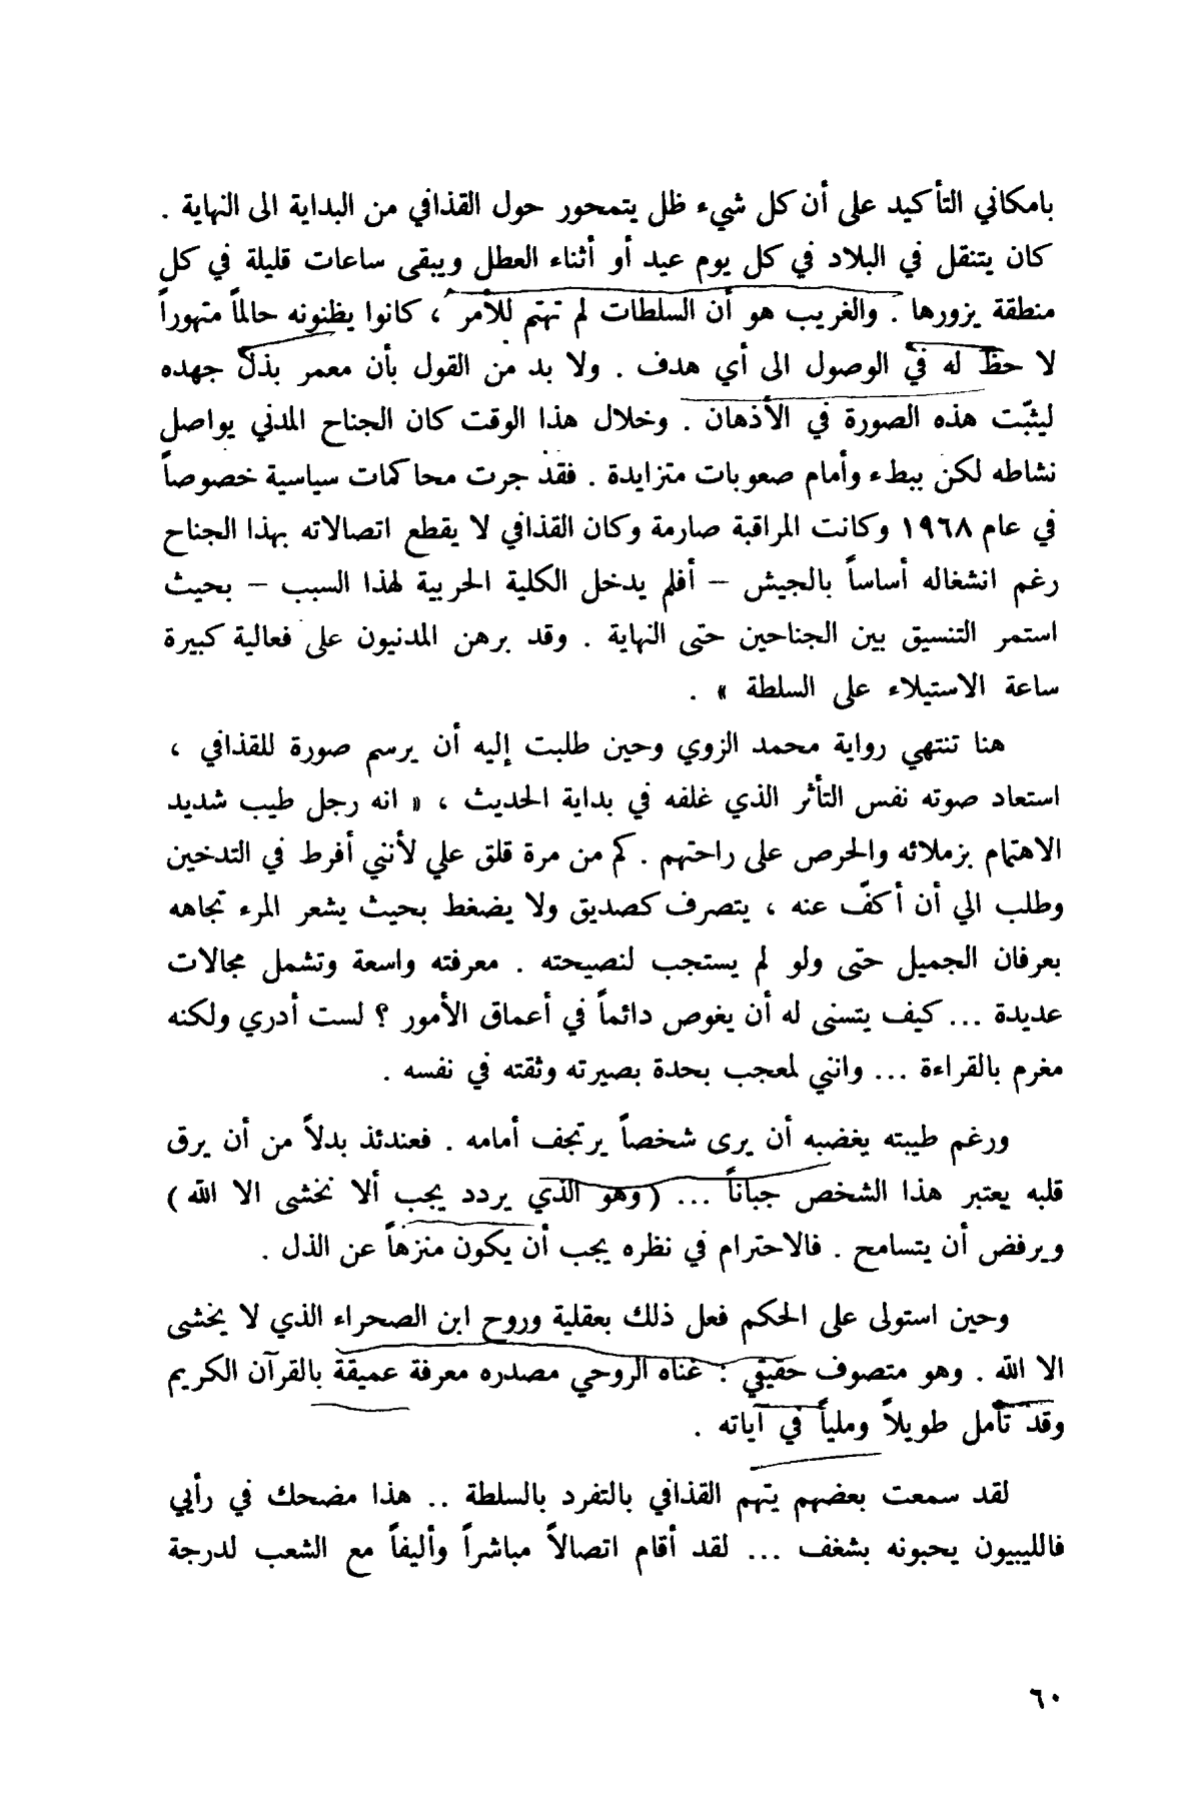 بامكاني التأكيد على أن كل شيء ظل يتمحور حول القذافي من البداية الى النهاية .
كان يتنقل في البلاد في كل يوم عيد أو أثناء العطل ويبقى ساعات قليلة في كل
منطقة يزورها . والغريب هو أن السلطات لم تهتم للأمر ، كانوا يظنونه حالماً متهوراً
لا حظ له في الوصول الى أي هدف . ولا بد من القول بأن معمر بذل جهده
ليثبّت هذه الصورة في الأذهان . وخلال هذا الوقت كان الجناح المدني يواصل
نشاطه لكن ببطء وأمام صعوبات متزايدة . فقد جرت محاكمات سياسية خصوصاً
في عام ١٩٦٨ وكانت المراقبة صارمة وكان القذافي لا يقطع اتصالاته بهذا الجناح
رغم انشغاله أساساً بالجيش – أفلم يدخل الكلية الحربية لهذا السبب – بحيث
استمر التنسيق بين الجناحين حتى النهاية . وقد برهن المدنيون على فعالية كبيرة
ساعة الاستيلاء على السلطة » .
هنا تنتهي رواية محمد الزوي وحين طلبت إليه أن يرسم صورة للقذافي ،
استعاد صوته نفس التأثر الذي غلفه في بداية الحديث ، « انه رجل طيب شديد
الاهتمام بزملائه والحرص على راحتهم . كم من مرة قلق علي لأنني أفرط في التدخين
وطلب الي أن أكفّ عنه ، يتصرف كصديق ولا يضغط بحيث يشعر المرء تجاهه
بعرفان الجميل حتى ولو لم يستجب لنصيحته . معرفته واسعة وتشمل مجالات
عديدة ... كيف يتسنى له أن يغوص دائماً في أعماق الأمور ؟ لست أدري ولكنه
مغرم بالقراءة ... وانني لمعجب بحدة بصيرته وثقته في نفسه .
ورغم طيبته يغضبه أن يرى شخصاً يرتجف أمامه . فعندئذ بدلاً من أن يرق
قلبه يعتبر هذا الشخص جباناً ... (وهو الذي يردد يجب ألا نخشى الا الله)
ويرفض أن يتسامح . فالاحترام في نظره يجب أن يكون منزهاً عن الذل .
وحين استولى على الحكم فعل ذلك بعقلية وروح ابن الصحراء الذي لا يخشى
الا الله . وهو متصوف حقيقي : غناه الروحي مصدره معرفة عميقة بالقرآن الكريم
وقد تأمل طويلاً ومليأً في آياته .
لقد سمعت بعضهم يتهم القذافي بالتفرد بالسلطة .. هذا مضحك في رأيي
فالليبيون يحبونه بشغف ... لقد أقام اتصالاً مباشراً وأليفاً مع الشعب لدرجة
٦٠